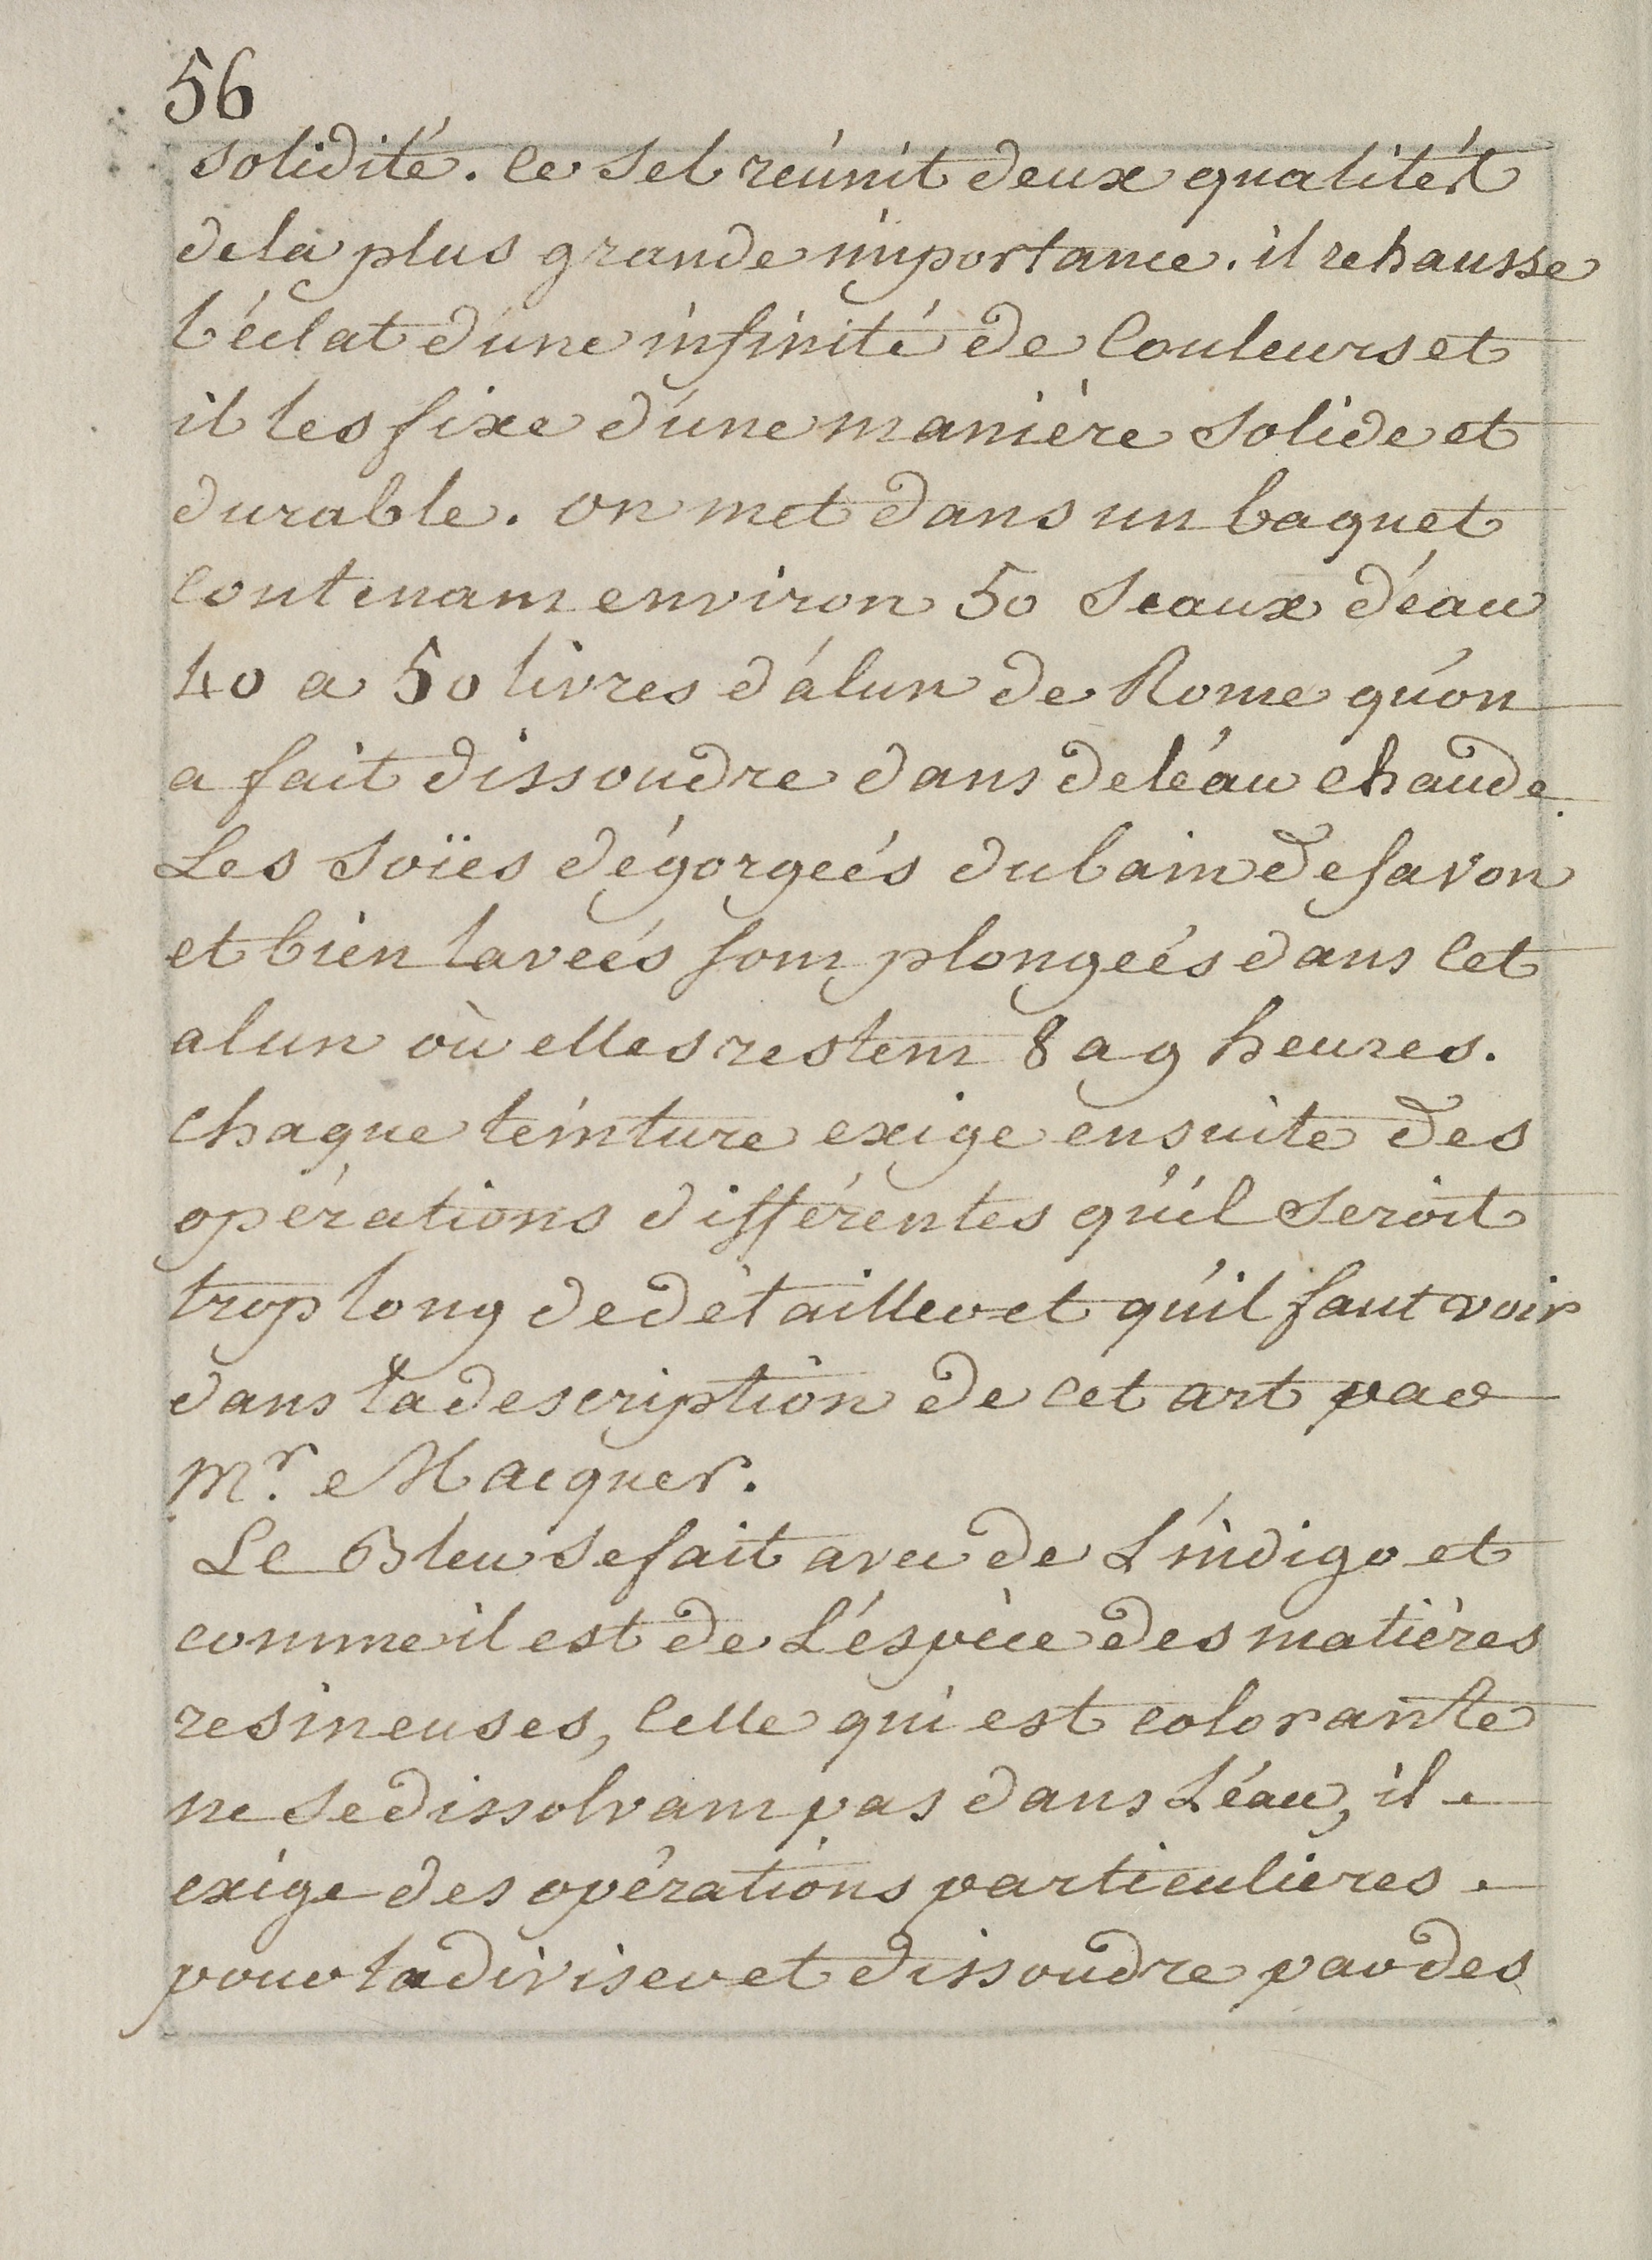 56
solidité. ce sel réunit deux qualités
de la plus grande importance. il rehausse
l'éclat d'une infinité de couleurs et
il les fixe d'une manière solide et
durable. on met dans un baquet
contenant environ 50 seaux d'éau
40 a 50 livres d'alun de Rome qu'on
a fait dissoudre dans de l'éau chaude.
Les soïes dégorgeés du bain de savon
et bien laveés sont plongeés dans cet
alun où elles restent 8 a 9 heures.
chaque teinture exige ensuite des
opérations différentes qu'il seroit
trop long de détailler et qu'il faut voir
dans la description de cet art par
Mr. Macquer.
Le Bleu se fait avec de L'indigo et
comme il est de L'éspèce des matières
resineuses, celle qui est colorante
ne se dissolvant pas dans L'éau, il
exige des opérations particulieres
pour la diviser et dissoudre par des